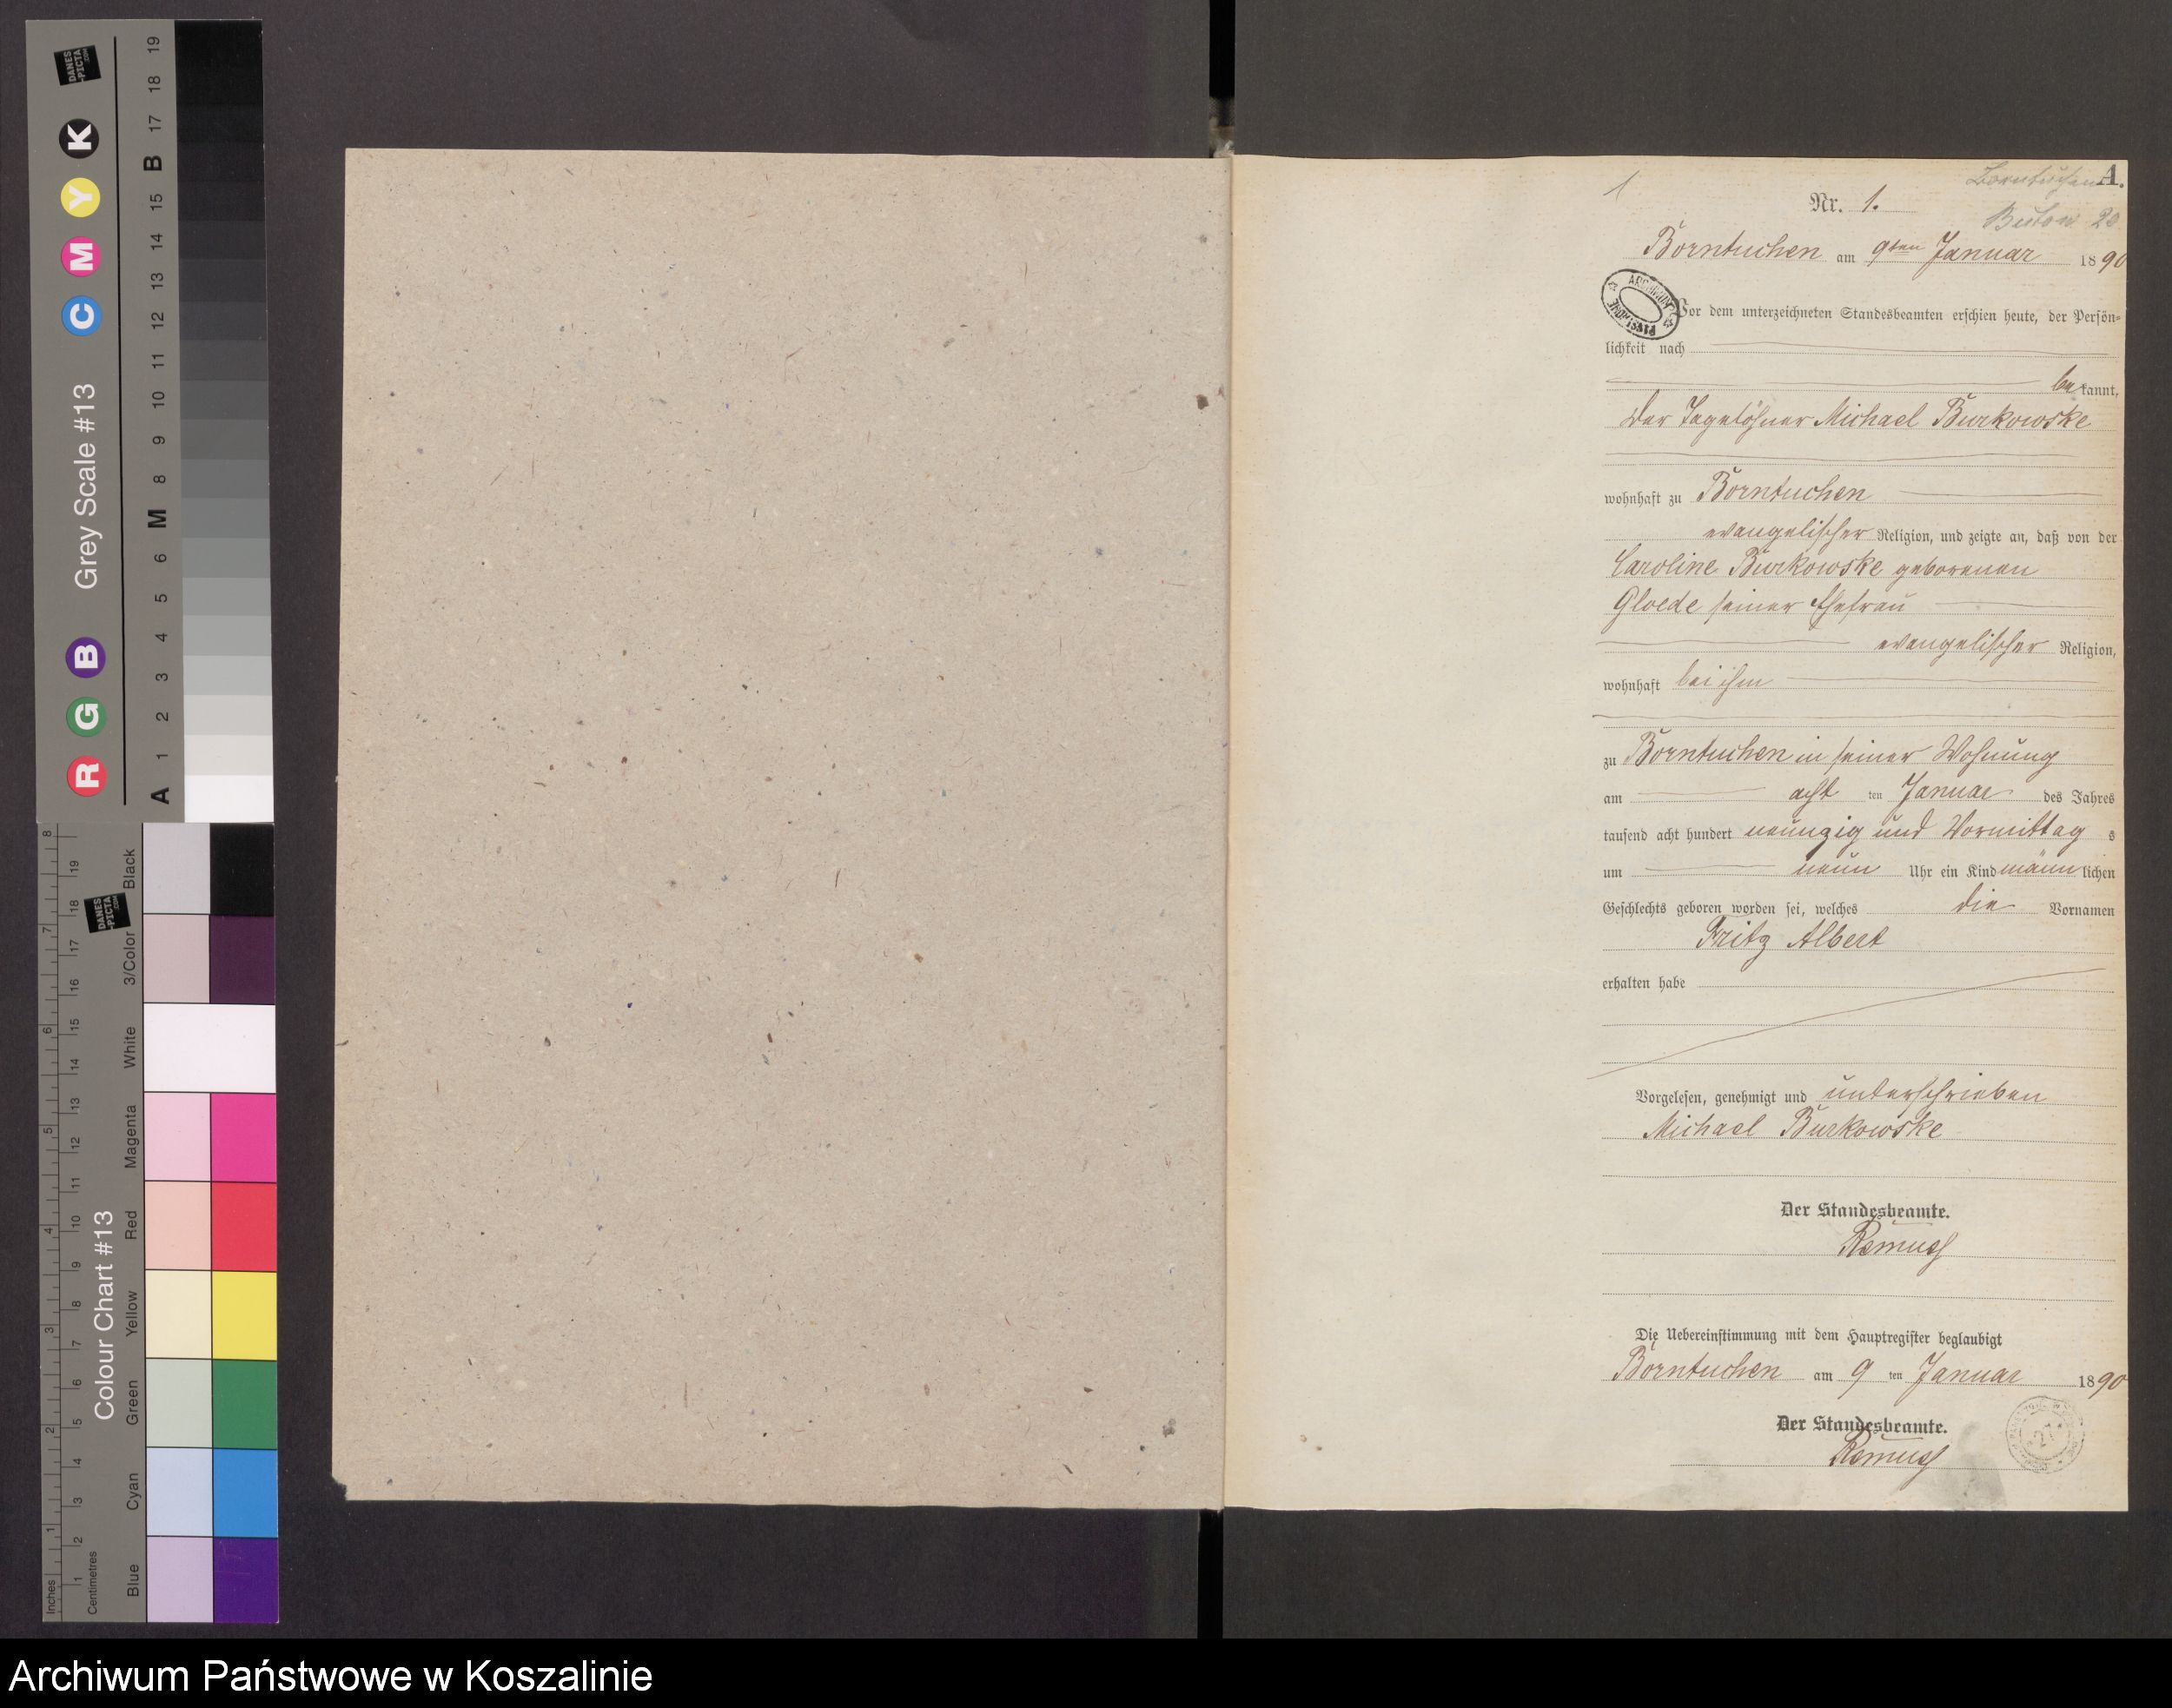 DANES
-PICTA
.COM
Grey Scale #13
R G B C M Y K
A 1 2 3 4 5 6 M 8 9 10 11 12 13 14 15 B 17 18 19
Colour Chart #13
Blue Cyan Green Yellow Red Magenta White 3/Color Black
Inches 1 2 3 4 5 6 7 8
Centimetres 1 2 3 4 5 6 7 8 9 10 11 12 13 14 15 16 17 18 19
DANES
-PICTA
.COM
1
Borntuchen A.
Nr. 1.
Bütow 20
Borntuchen am 9ten Januar 1890
ARCHIWUM PAŃSTWOWE
Vor dem unterzeichneten Standesbeamten erschien heute, der Persön-
lichkeit nach
bekannt,
Der Tagelöhner Michael Burkowske
wohnhaft zu Borntuchen
evangelischer Religion, und zeigte an, daß von der
Caroline Burkowske geborenen
Gloede seiner Ehefrau
evangelischer Religion,
wohnhaft bei ihm
zu Borntuchen in seiner Wohnung
am acht ten Januar des Jahres
tausend acht hundert neunzig und Vormittag s
um neun Uhr ein Kind männlichen
Geschlechts geboren worden sei, welches die Vornamen
Fritz Albert
erhalten habe
Vorgelesen, genehmigt und unterschrieben
Michael Burkowske
Der Standesbeamte.
Remus
Die Uebereinstimmung mit dem Hauptregister beglaubigt
Borntuchen am 9 ten Januar 1890
Der Standesbeamte.
Remus
Archiwum Państwowe w Koszalinie